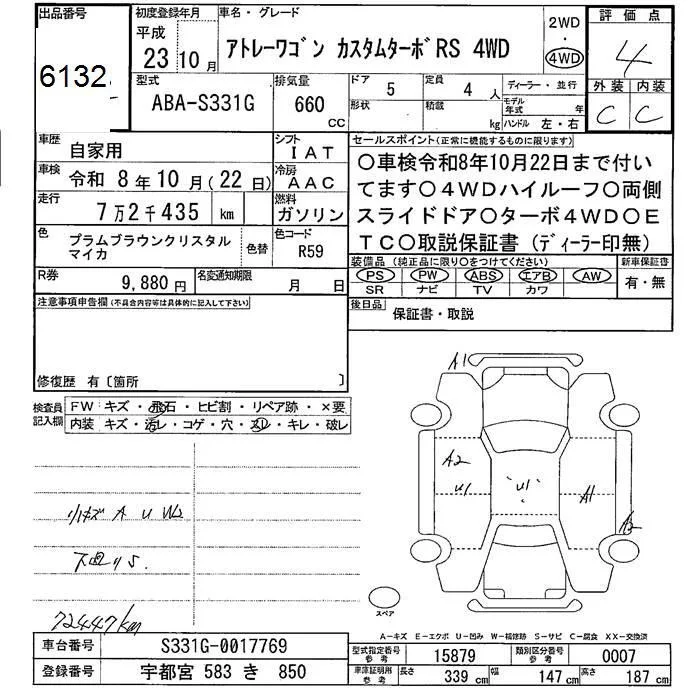 出品番号
6132
初度登録年月
平成
23 10 月
車名・グレード
アトレーワゴン カスタムターボRS 4WD
2WD
・
4WD
評価点
4
型式
ABA-S331G
排気量
660
CC
ドア
5
定員
4 人
形状
積載
kg
ディーラー・並行
モデル年式
年
ハンドル 左・右
外装 内装
C C
車歴
自家用
シフト
IAT
車検
令和 8 年 10 月 (22 日)
冷房
AAC
走行
7 万 2 千 435 km
燃料
ガソリン
色
プラムブラウンクリスタル
マイカ
色替
色コード
R59
R券
9,880 円
名変通知期限
月 日
セールスポイント(正常に機能するものに限ります)
○車検令和8年10月22日まで付い
てます○4WDハイルーフ○両側
スライドドア○ターボ4WD○E
TC○取説保証書(ディーラー印無)
装備品(純正品に限り○をつけてください)
新車保証書
PS PW ABS エアB AW
SR ナビ TV カワ
有・無
後日品
保証書・取説
注意事項申告欄(不具合内容等は具体的に記入して下さい)
修復歴 有〔箇所 〕
検査員
記入欄
FW キズ・飛石・ヒビ割・リペア跡・×要
内装 キズ・汚レ・コゲ・穴・スレ・キレ・破レ
小キズ A U W2
下廻りS.
72447km
A1
A2
U1
U1
A1
A2
スペア
A-キズ E-エクボ U-凹み W-補修跡 S-サビ C-腐食 XX-交換済
車台番号
S331G-0017769
登録番号
宇都宮 583 き 850
型式指定番号
参考
15879
類別区分番号
参考
0007
車庫証明用
参考
長さ
339 cm
幅
147 cm
高さ
187 cm